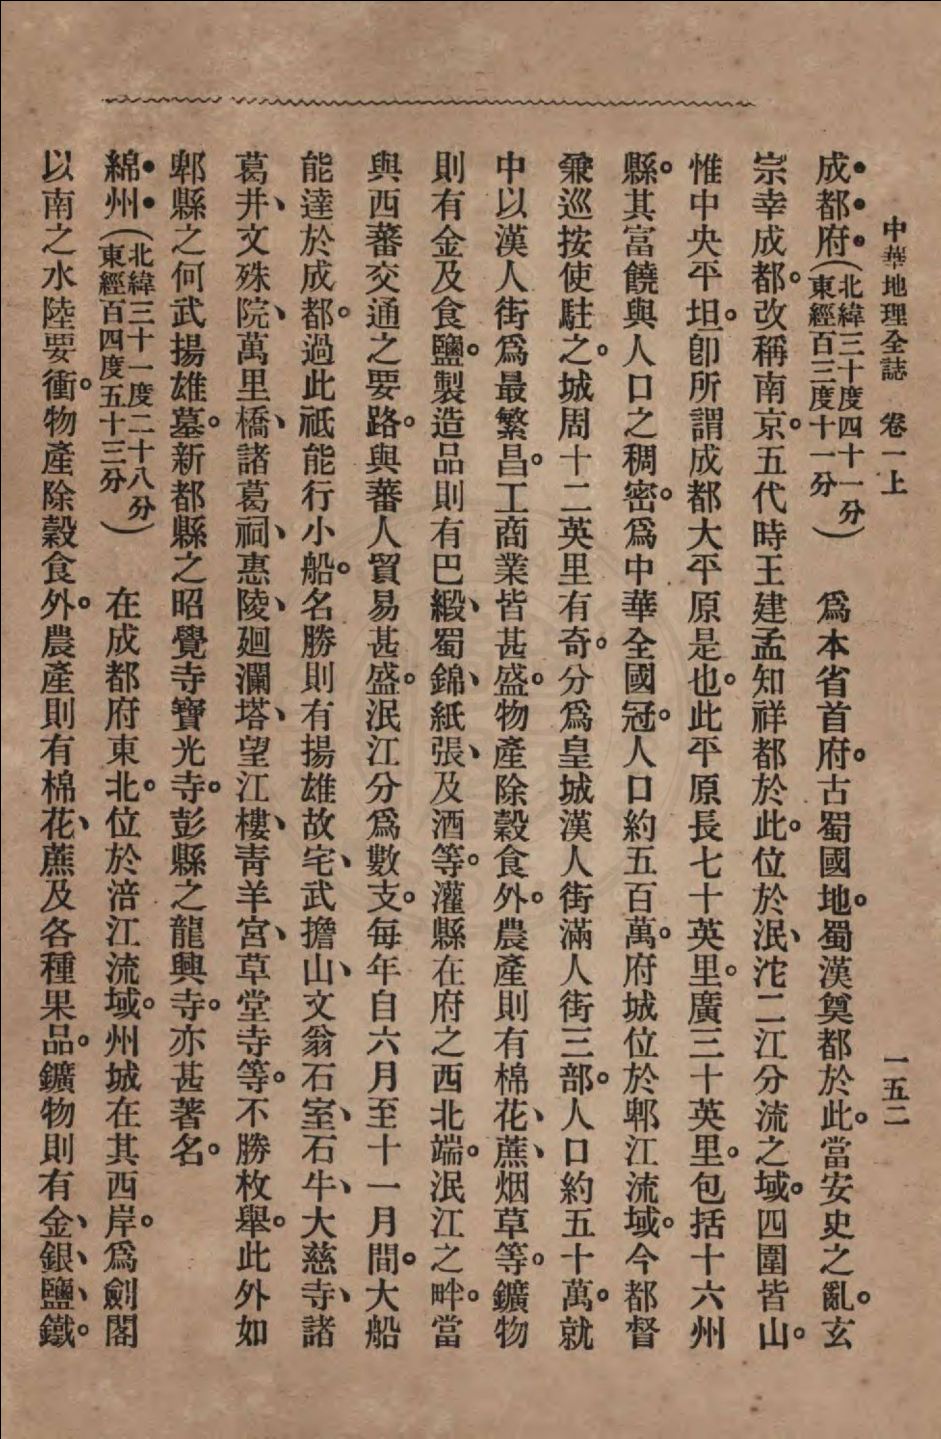 中華地理全誌　卷一上　一五二
成都府（北緯三十度四十一分東經百三度十一分）　爲本省首府。古蜀國地。蜀漢奠都於此。當安史之亂。玄
宗幸成都。改稱南京。五代時王建孟知祥都於此。位於泯、沱二江分流之域。四圍皆山。
惟中央平坦。卽所謂成都大平原是也。此平原長七十英里。廣三十英里。包括十六州
縣。其富饒與人口之稠密。爲中華全國冠。人口約五百萬。府城位於郫江流域。今都督
兼巡按使駐之。城周十二英里有奇。分爲皇城漢人街滿人街三部。人口約五十萬。就
中以漢人街爲最繁昌。工商業皆甚盛。物產除穀食外。農產則有棉花、蔗、烟草等。鑛物
則有金及食鹽。製造品則有巴緞、蜀錦、紙張、及酒等。灌縣在府之西北端。泯江之畔。當
與西蕃交通之要路。與蕃人貿易甚盛。泯江分爲數支。每年自六月至十一月間。大船
能達於成都。過此祇能行小船。名勝則有揚雄故宅、武擔山、文翁石室、石牛、大慈寺、諸
葛井、文殊院、萬里橋、諸葛祠、惠陵、廻瀾塔、望江樓、靑羊宮、草堂寺等。不勝枚舉。此外如
郫縣之何武揚雄墓。新都縣之昭覺寺寶光寺。彭縣之龍興寺。亦甚著名。
綿州（北緯三十一度二十八分東經百四度五十三分）　在成都府東北。位於涪江流域。州城在其西岸。爲劍閣
以南之水陸要衝。物產除穀食外。農產則有棉花、蔗及各種果品。鑛物則有金、銀、鹽、鐵。